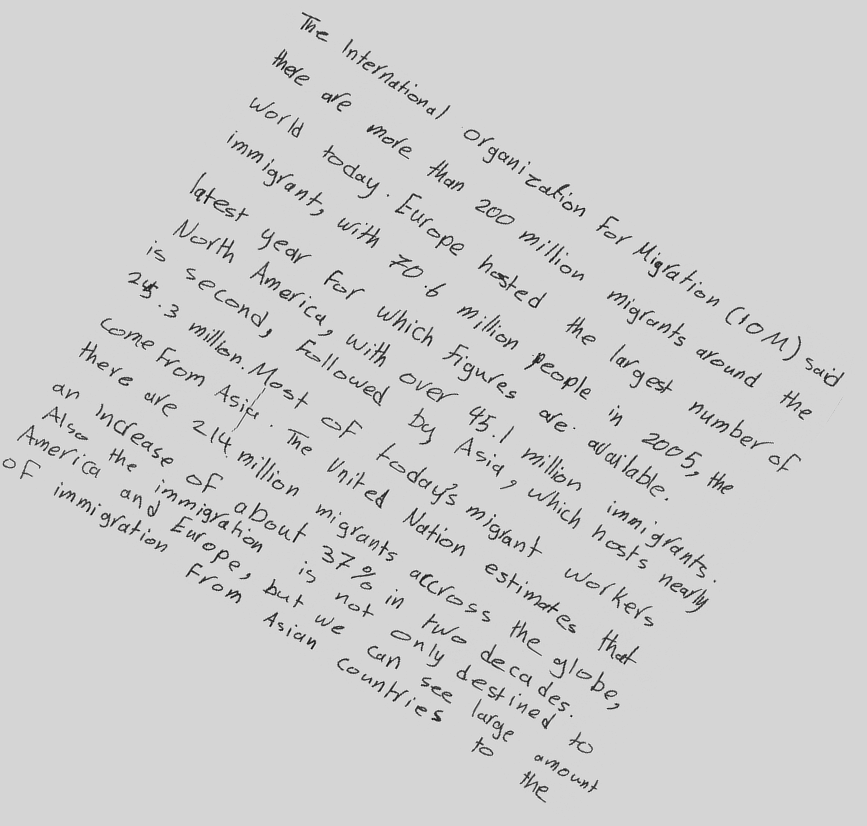 The International Organization For Migration (IOM) said
there are more than 200 million migrants around the
world today. Europe hosted the largest number of
immigrant, with 70.6 million people in 2005, the
latest year for which figures are available.
North America, with over 45.1 million immigrants.
is second, followed by Asia, which hosts nearly
25.3 million. Most of today's migrant workers
come from Asia. The United Nation estimates that
there are 214 million migrants accross the globe,
an increase of about 37% in two decades.
Also the immigration is not only destined to
America and Europe, but we can see large amount
of immigration from Asian countries to the